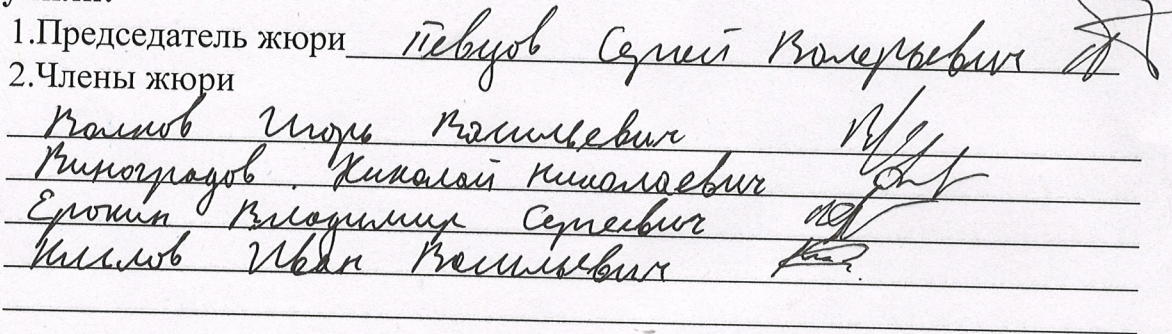 1.Председатель жюри Певцов Сергей Валерьевич
2.Члены жюри
Волков Игорь Васильевич
Виноградов Николай Николаевич
Ерохин Владимир Сергеевич
Иван Васильевич